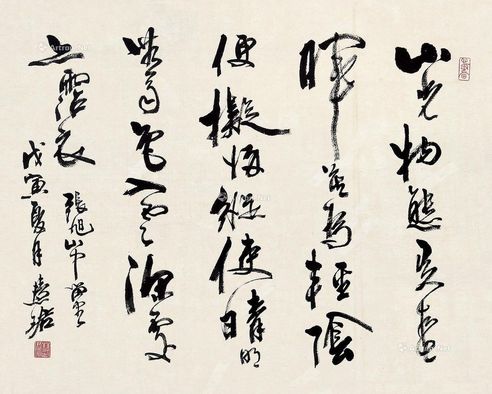 山光物態弄春
暉莫為輕陰
便擬歸縱使晴明
無雨色入雲深處
亦霑衣
張旭山中留客
戊寅夏月慧珺